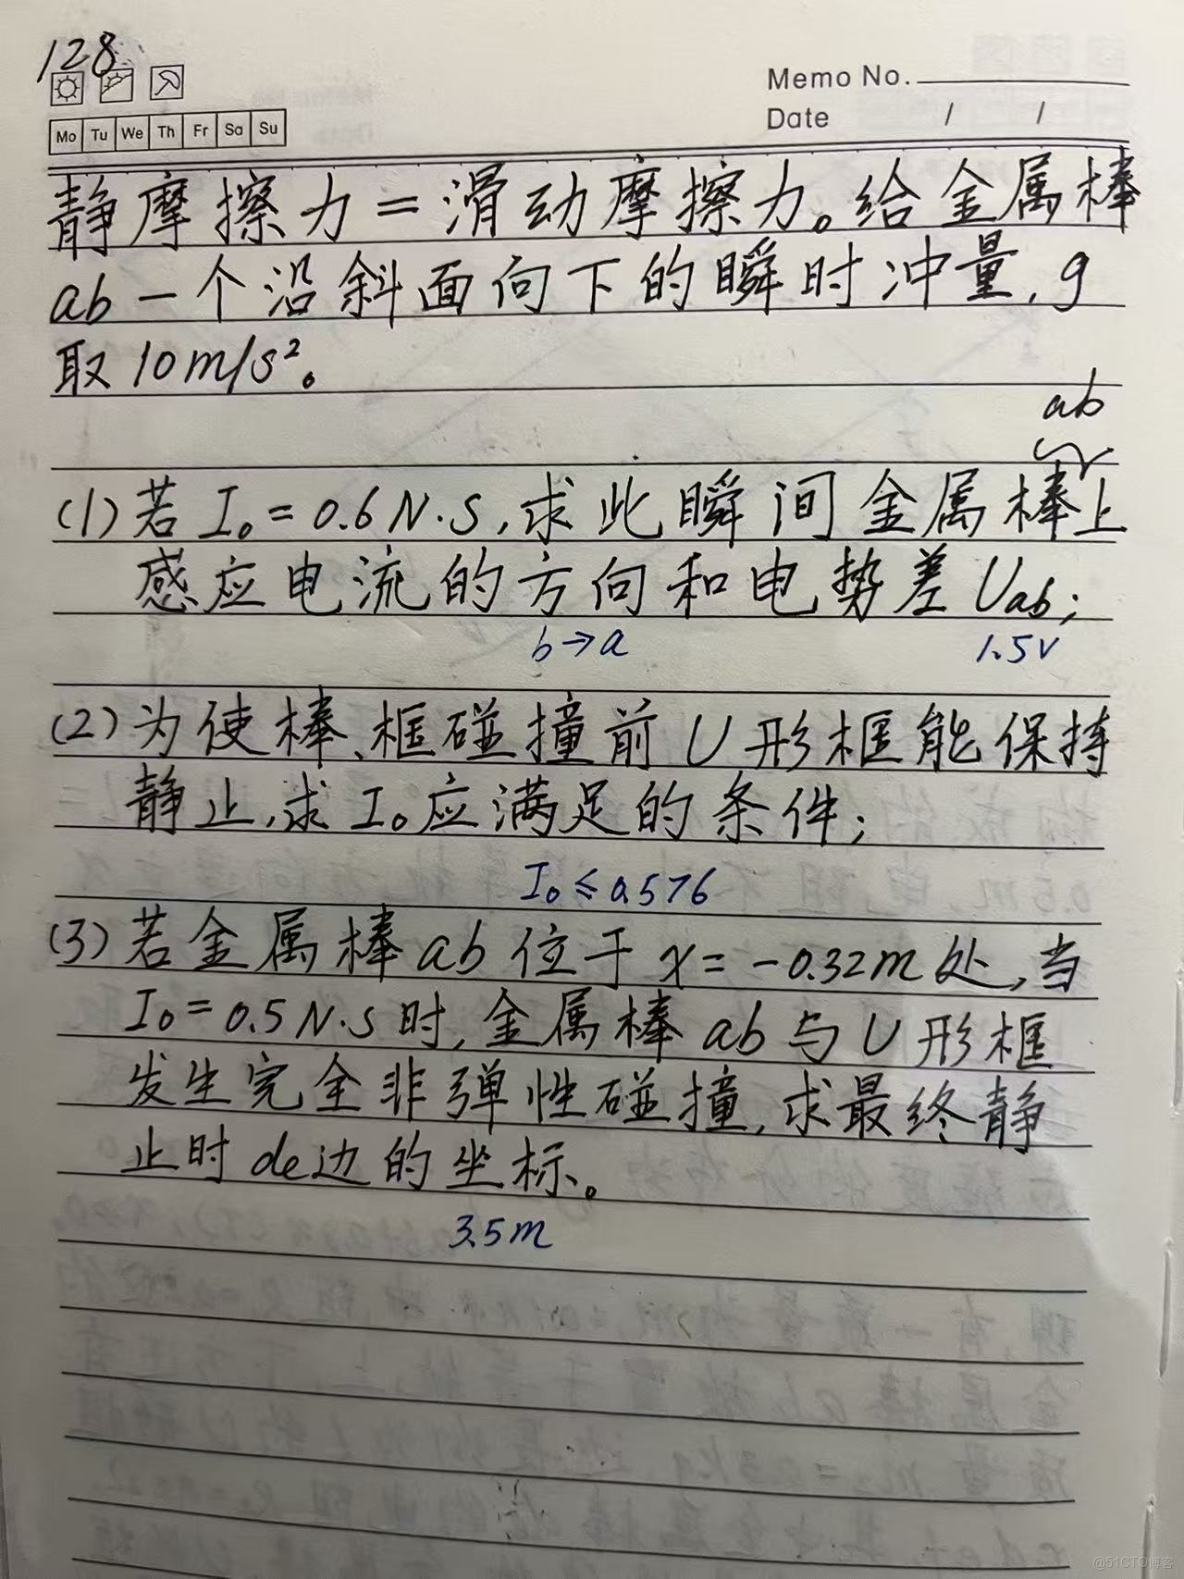 128
Memo No.
Mo Tu We Th Fr Sa Su
Date / /
静摩擦力=滑动摩擦力。给金属棒
ab一个沿斜面向下的瞬时冲量,g
取10m/s²。
ab
(1)若I₀=0.6N·S,求此瞬间金属棒上
感应电流的方向和电势差Uab;
b→a 1.5V
(2)为使棒、框碰撞前U形框能保持
静止,求I₀应满足的条件;
I₀≤0.576
(3)若金属棒ab位于x=-0.32m处,当
I₀=0.5N·S时,金属棒ab与U形框
发生完全非弹性碰撞,求最终静
止时de边的坐标。
3.5m
@51CTO博客